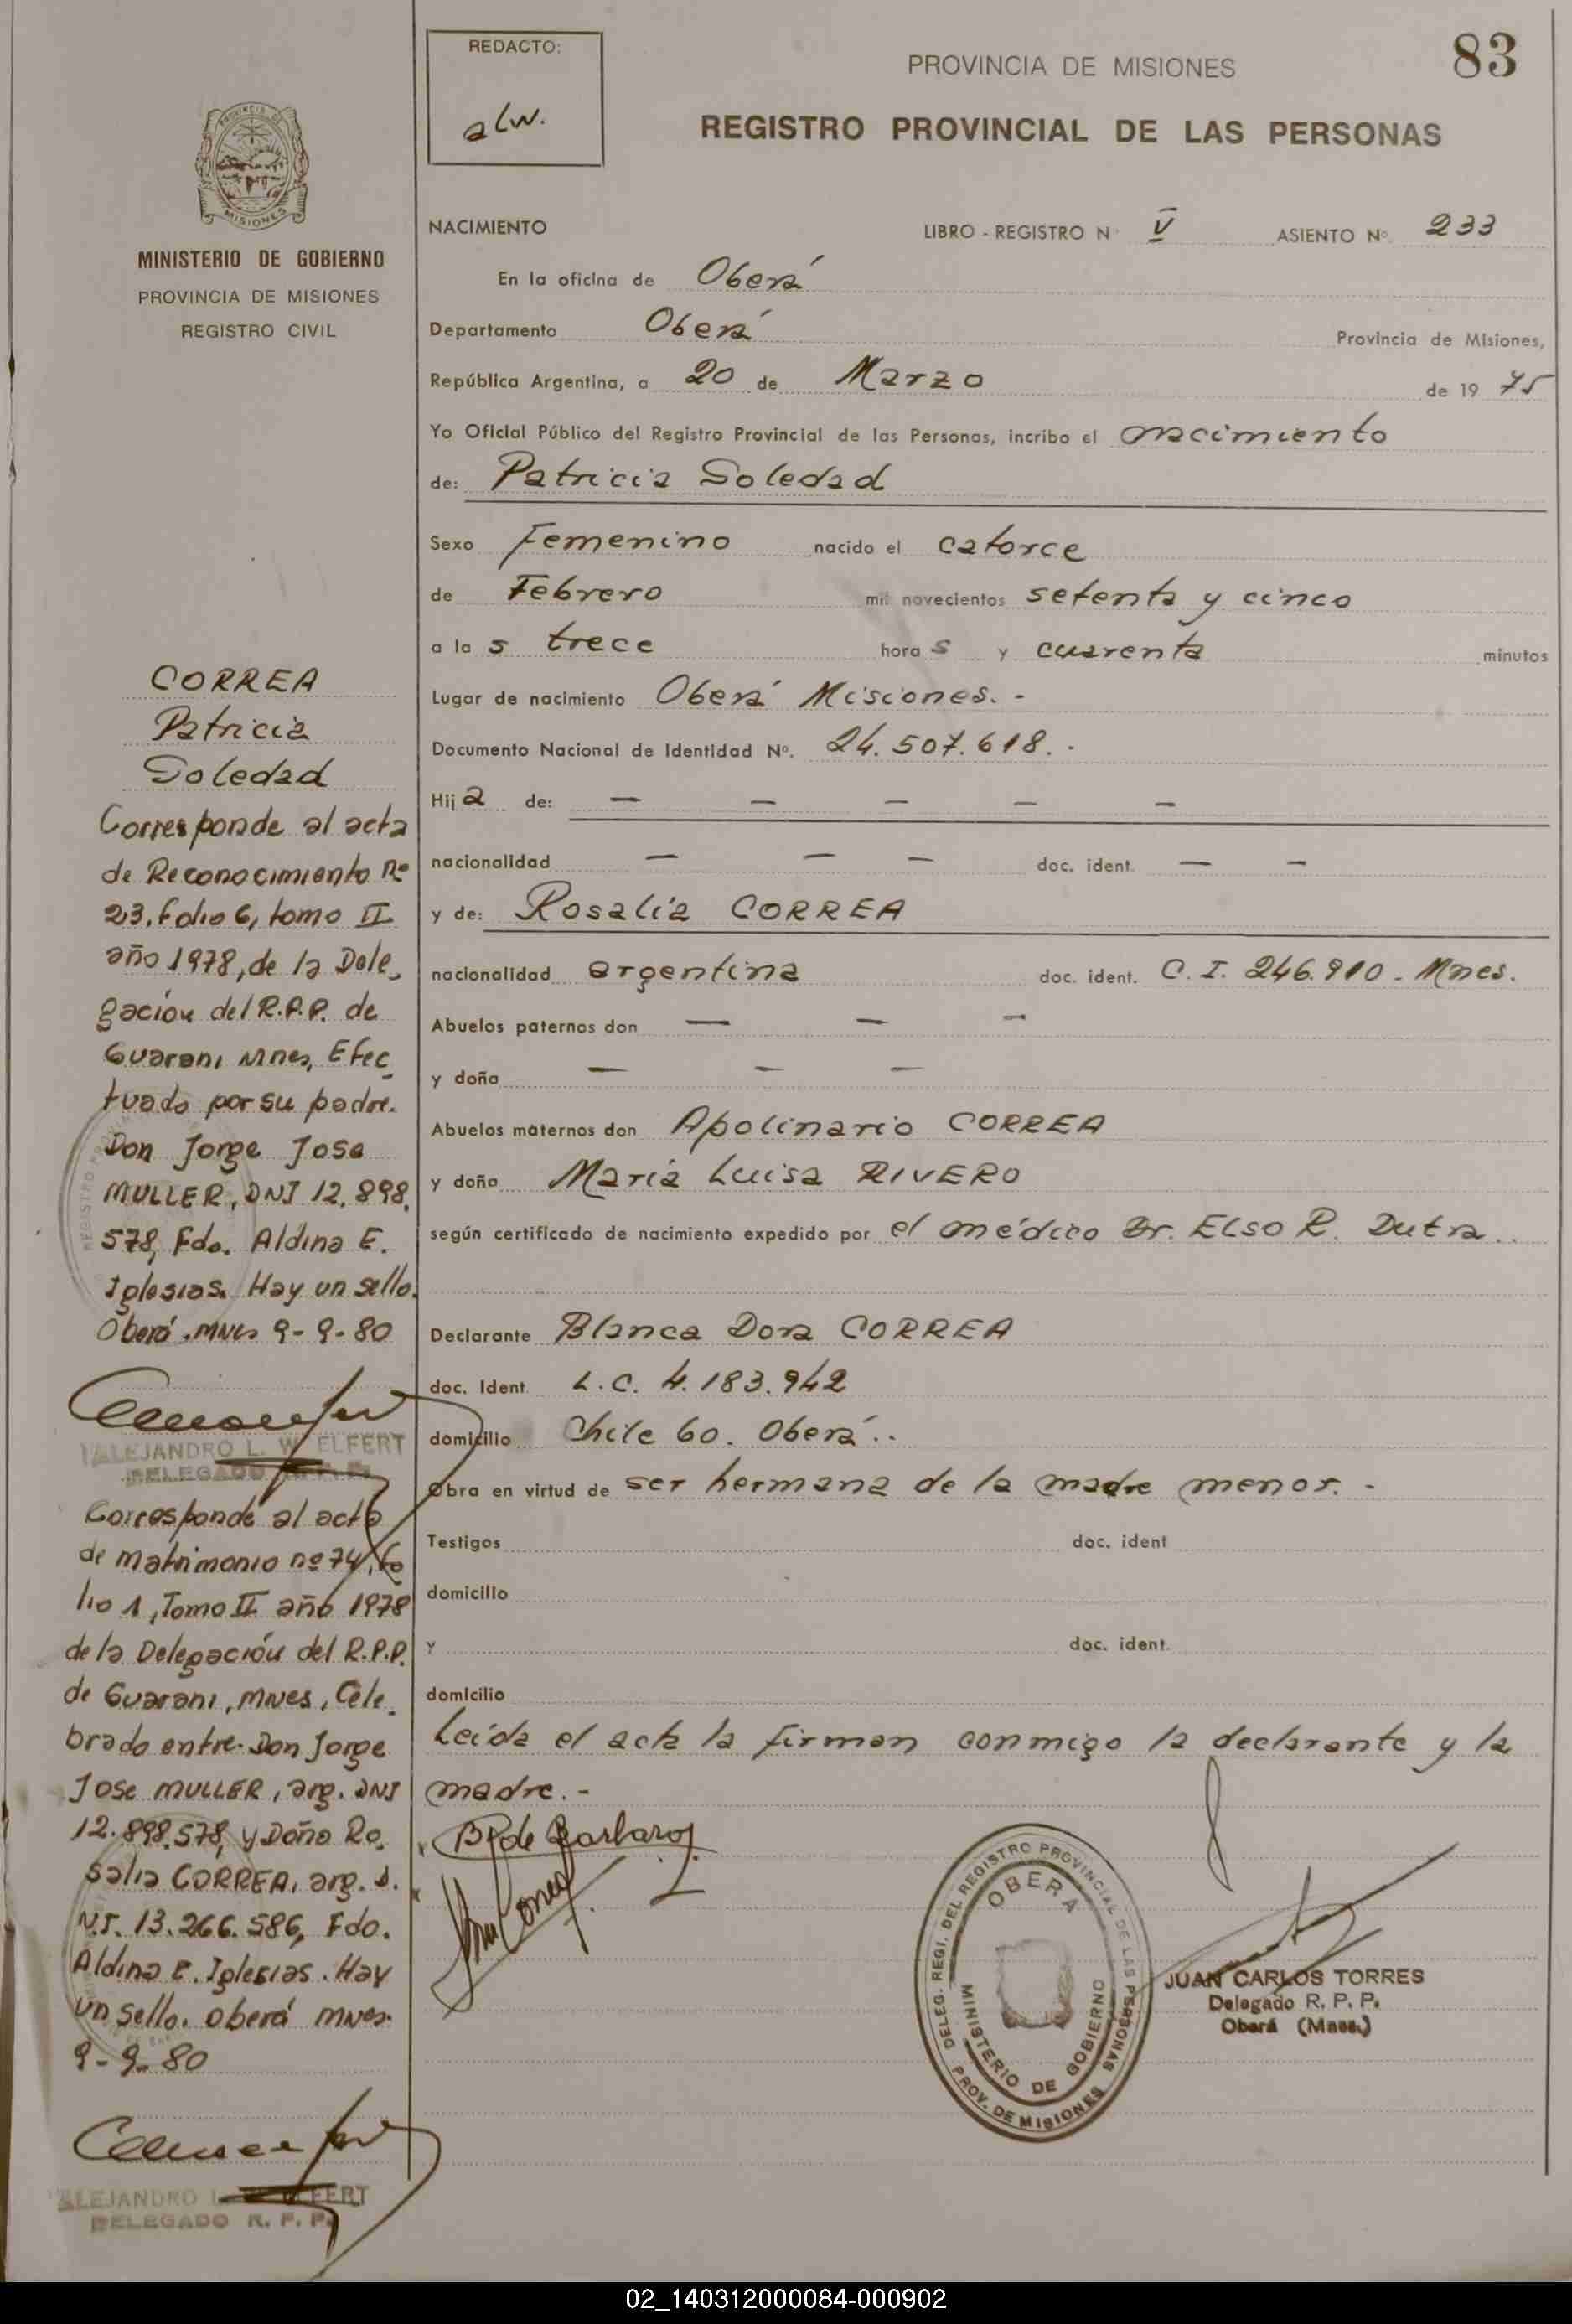 83
REDACTO:
alw.
PROVINCIA DE MISIONES
REGISTRO PROVINCIAL DE LAS PERSONAS
MISIONES
MINISTERIO DE GOBIERNO
PROVINCIA DE MISIONES
REGISTRO CIVIL
NACIMIENTO LIBRO - REGISTRO N° V ASIENTO N° 233
En la oficina de Oberá
Departamento Oberá Provincia de Misiones,
República Argentina, a 20 de Marzo de 19 75
Yo Oficial Público del Registro Provincial de las Personas, incribo el nacimiento
de: Patricia Soledad
Sexo Femenino nacido el catorce
de Febrero mil novecientos setenta y cinco
a la s trece hora s y cuarenta minutos
Lugar de nacimiento Oberá Misiones. -
Documento Nacional de Identidad N°. 24.507.618. -
Hij a de: — — — — —
nacionalidad — — — doc. ident. — —
y de: Rosalía CORREA
nacionalidad argentina doc. ident. C. I. 246.910 - Mnes.
Abuelos paternos don — — —
y doña — — —
Abuelos maternos don Apolinario CORREA
y doña María Luisa RIVERO
según certificado de nacimiento expedido por el médico Dr. ELSO R. Dutra..
Declarante Blanca Dora CORREA
doc. Ident. L.C. 4.183.942
domicilio Chile 60. Oberá..
Obra en virtud de ser hermana de la madre menor. -
Testigos doc. ident
domicilio
y doc. ident.
domicilio
Leída el acta la firman conmigo la declarante y la
madre. -
CORREA
Patricia
Soledad
Corresponde al acta
de Reconocimiento nº
213, folio 6, tomo II
año 1978, de la Dele-
gación del R.P.P. de
Guarani Mnes, Efec
tuado por su padre.
Don Jorge Jose
MULLER, DNI 12.898.
578, Fdo. Aldina E.
Iglesias. Hay un sello.
Oberá, Mnes 9-9-80
ALEJANDRO L. W. ELFERT
DELEGADO R. P. P.
Corresponde al acta
de matrimonio nº 74, fo
lio 1, Tomo II año 1978
de la Delegación del R.P.P.
de Guarani, Mnes, Cele.
brado entre Don Jorge
Jose MULLER, arg. DNI
12.898.578, y Doña Ro.
salia CORREA, arg. D.
N.I. 13.266.586, Fdo.
Aldina E. Iglesias. Hay
un sello. Oberá Mnes.
9-9-80
ALEJANDRO L. W. ELFERT
DELEGADO R. P. P.
B C de Barbaroj
DELEG. REGI. DEL REGISTRO PROVINCIAL DE LAS PERSONAS
OBERA
MINISTERIO DE GOBIERNO
PROV. DE MISIONES
JUAN CARLOS TORRES
Delegado R. P. P.
Oberá (Mnes.)
02_140312000084-000902